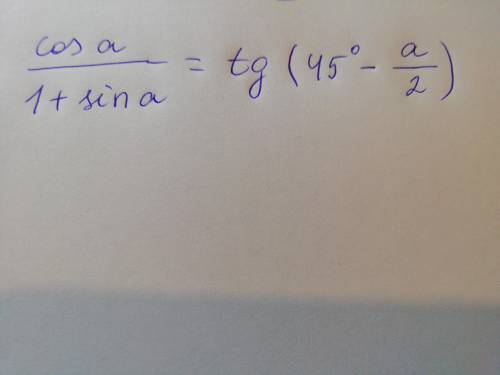 cos a / 1 + sin a = tg (45° - a/2)